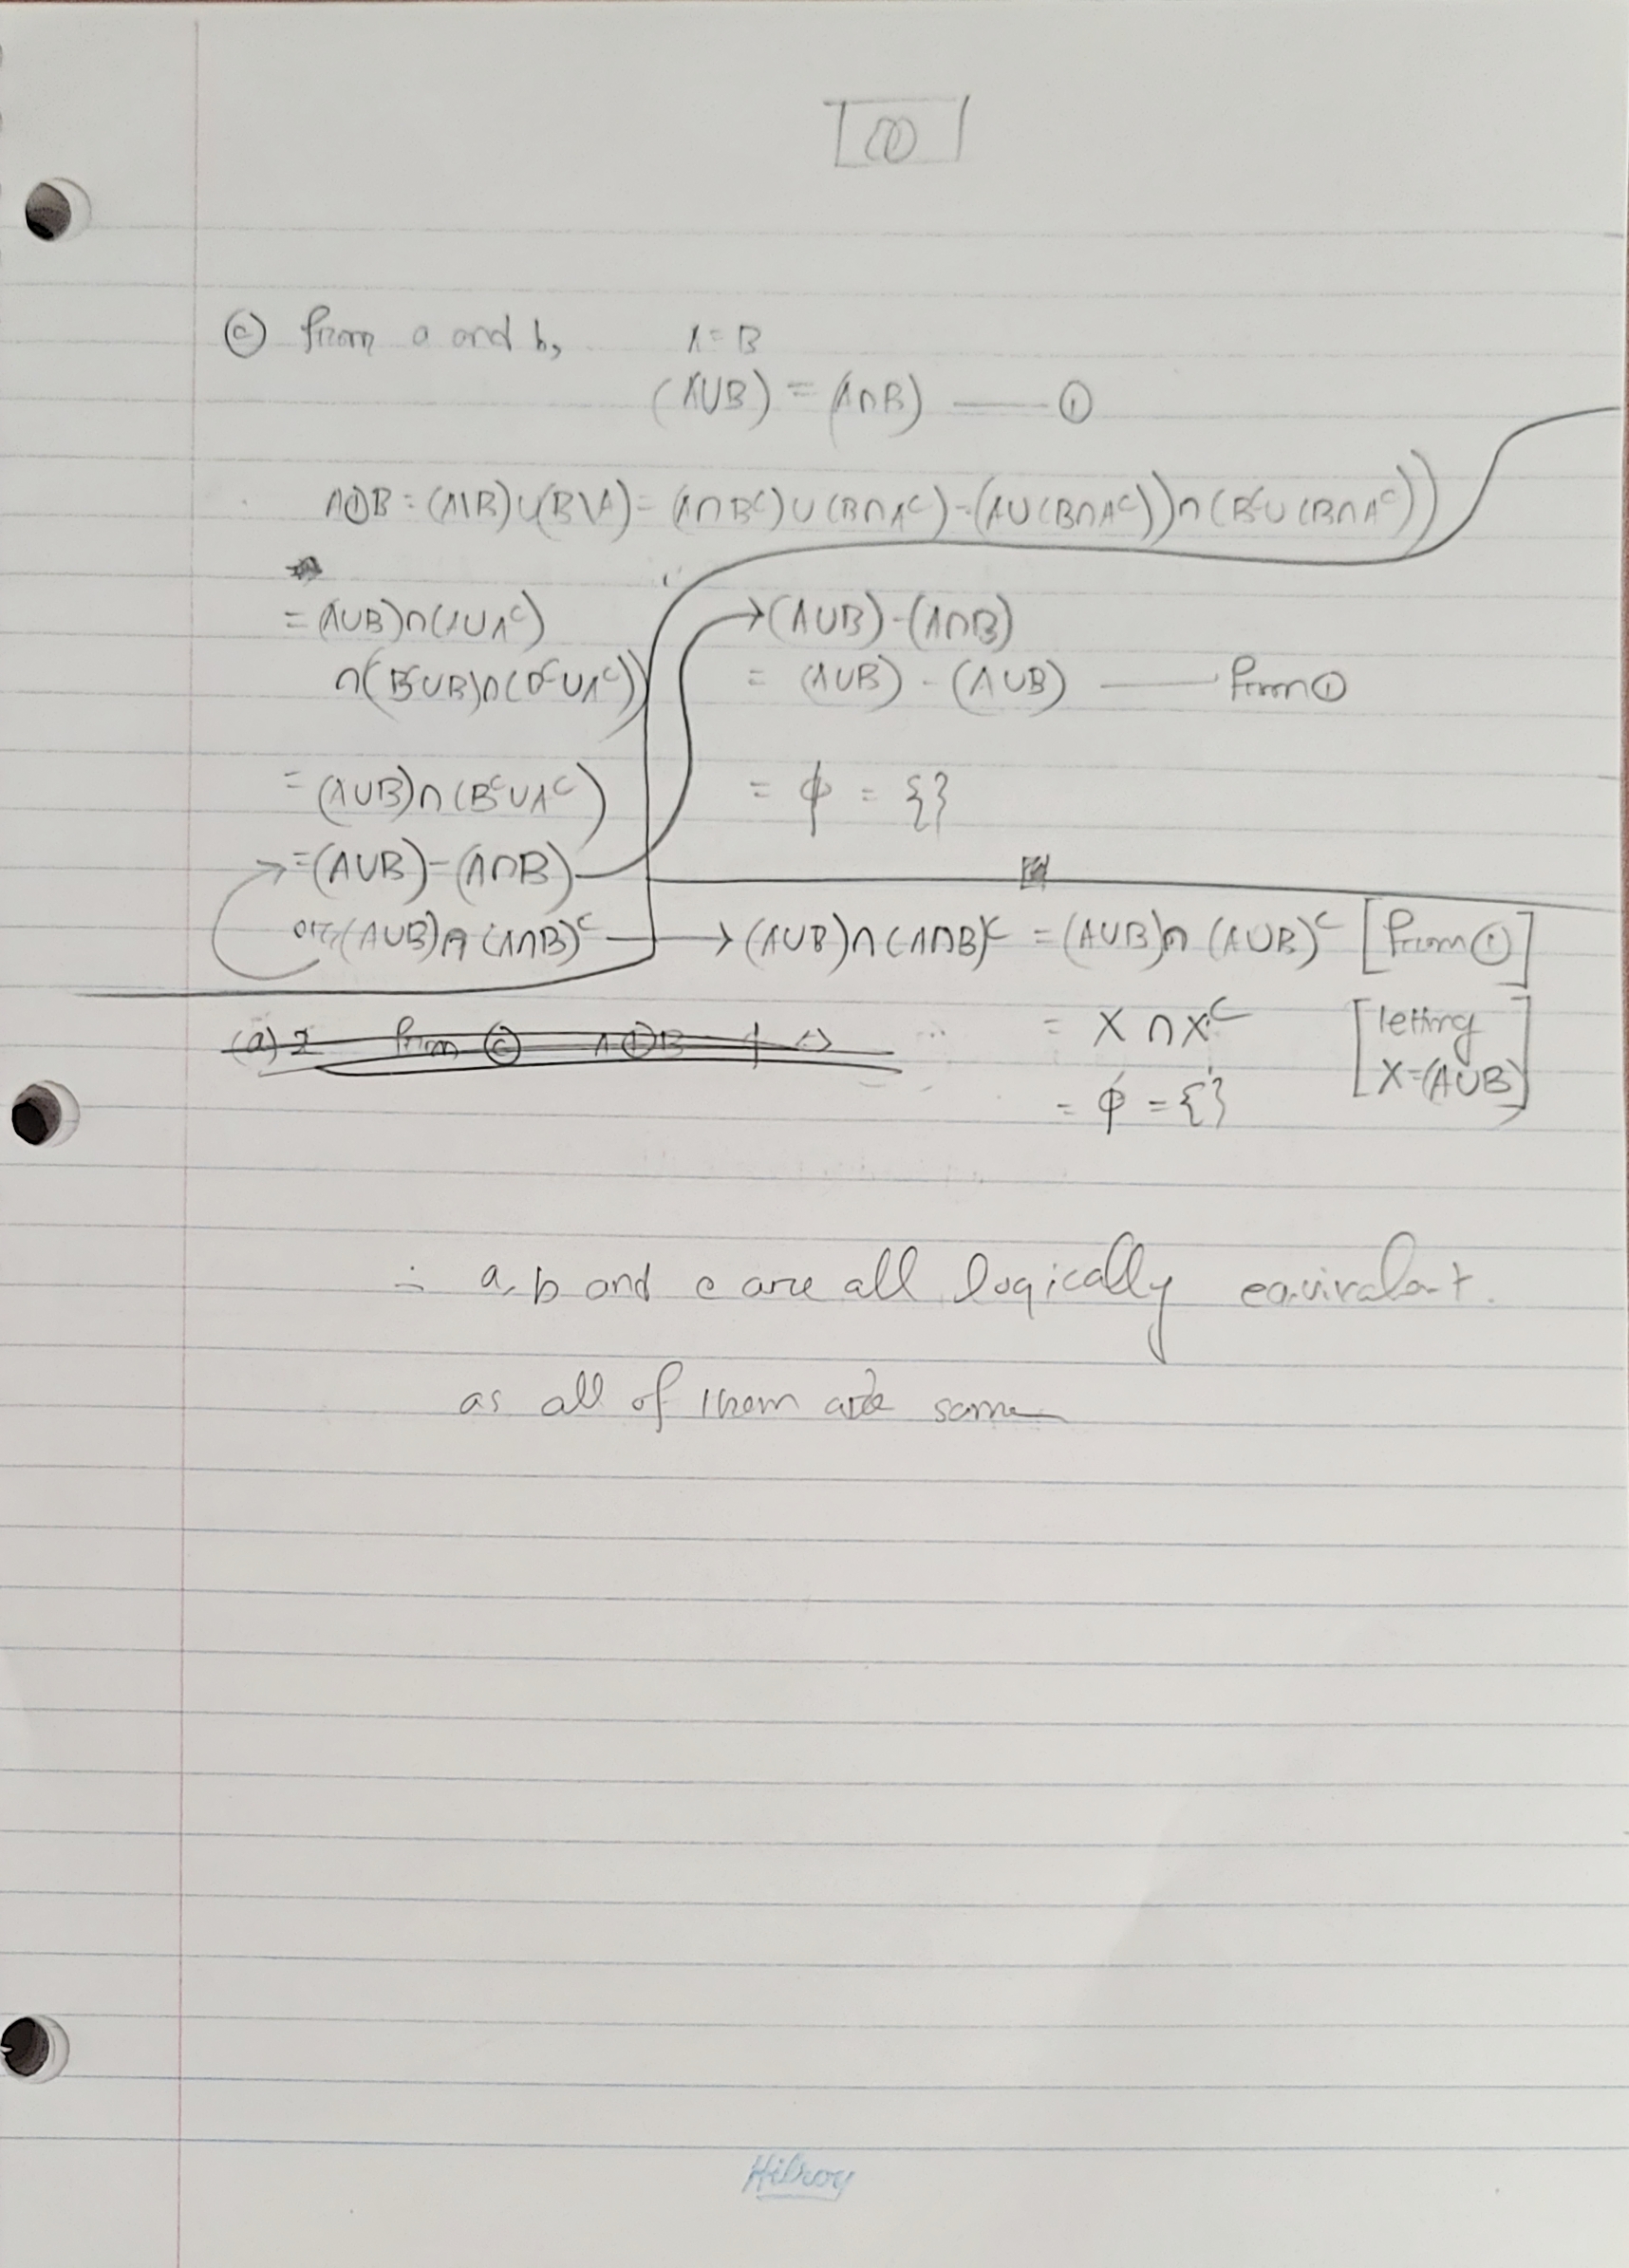 ⓒ from a and b, A = B
(A∪B) = (A∩B) —— ①
A⊕B = (A\B)∪(B\A) = (A∩Bᶜ)∪(B∩Aᶜ) = (A∪(B∩Aᶜ))∩(Bᶜ∪(B∩Aᶜ))
= (A∪B)∩(A∪Aᶜ)
∩(Bᶜ∪B)∩(Bᶜ∪Aᶜ))
= (A∪B)∩(Bᶜ∪Aᶜ)
= (A∪B)-(A∩B)
or, (A∪B)∩(A∩B)ᶜ
→(A∪B)-(A∩B)
= (A∪B) - (A∪B) —— from ①
= ϕ = {}
→ (A∪B)∩(A∩B)ᶜ = (A∪B)∩(A∪B)ᶜ [from ①]
= X ∩ Xᶜ [letting X=(A∪B)]
= ϕ = {}
∴ a, b and c are all logically equivalent.
as all of them are same
Hilroy